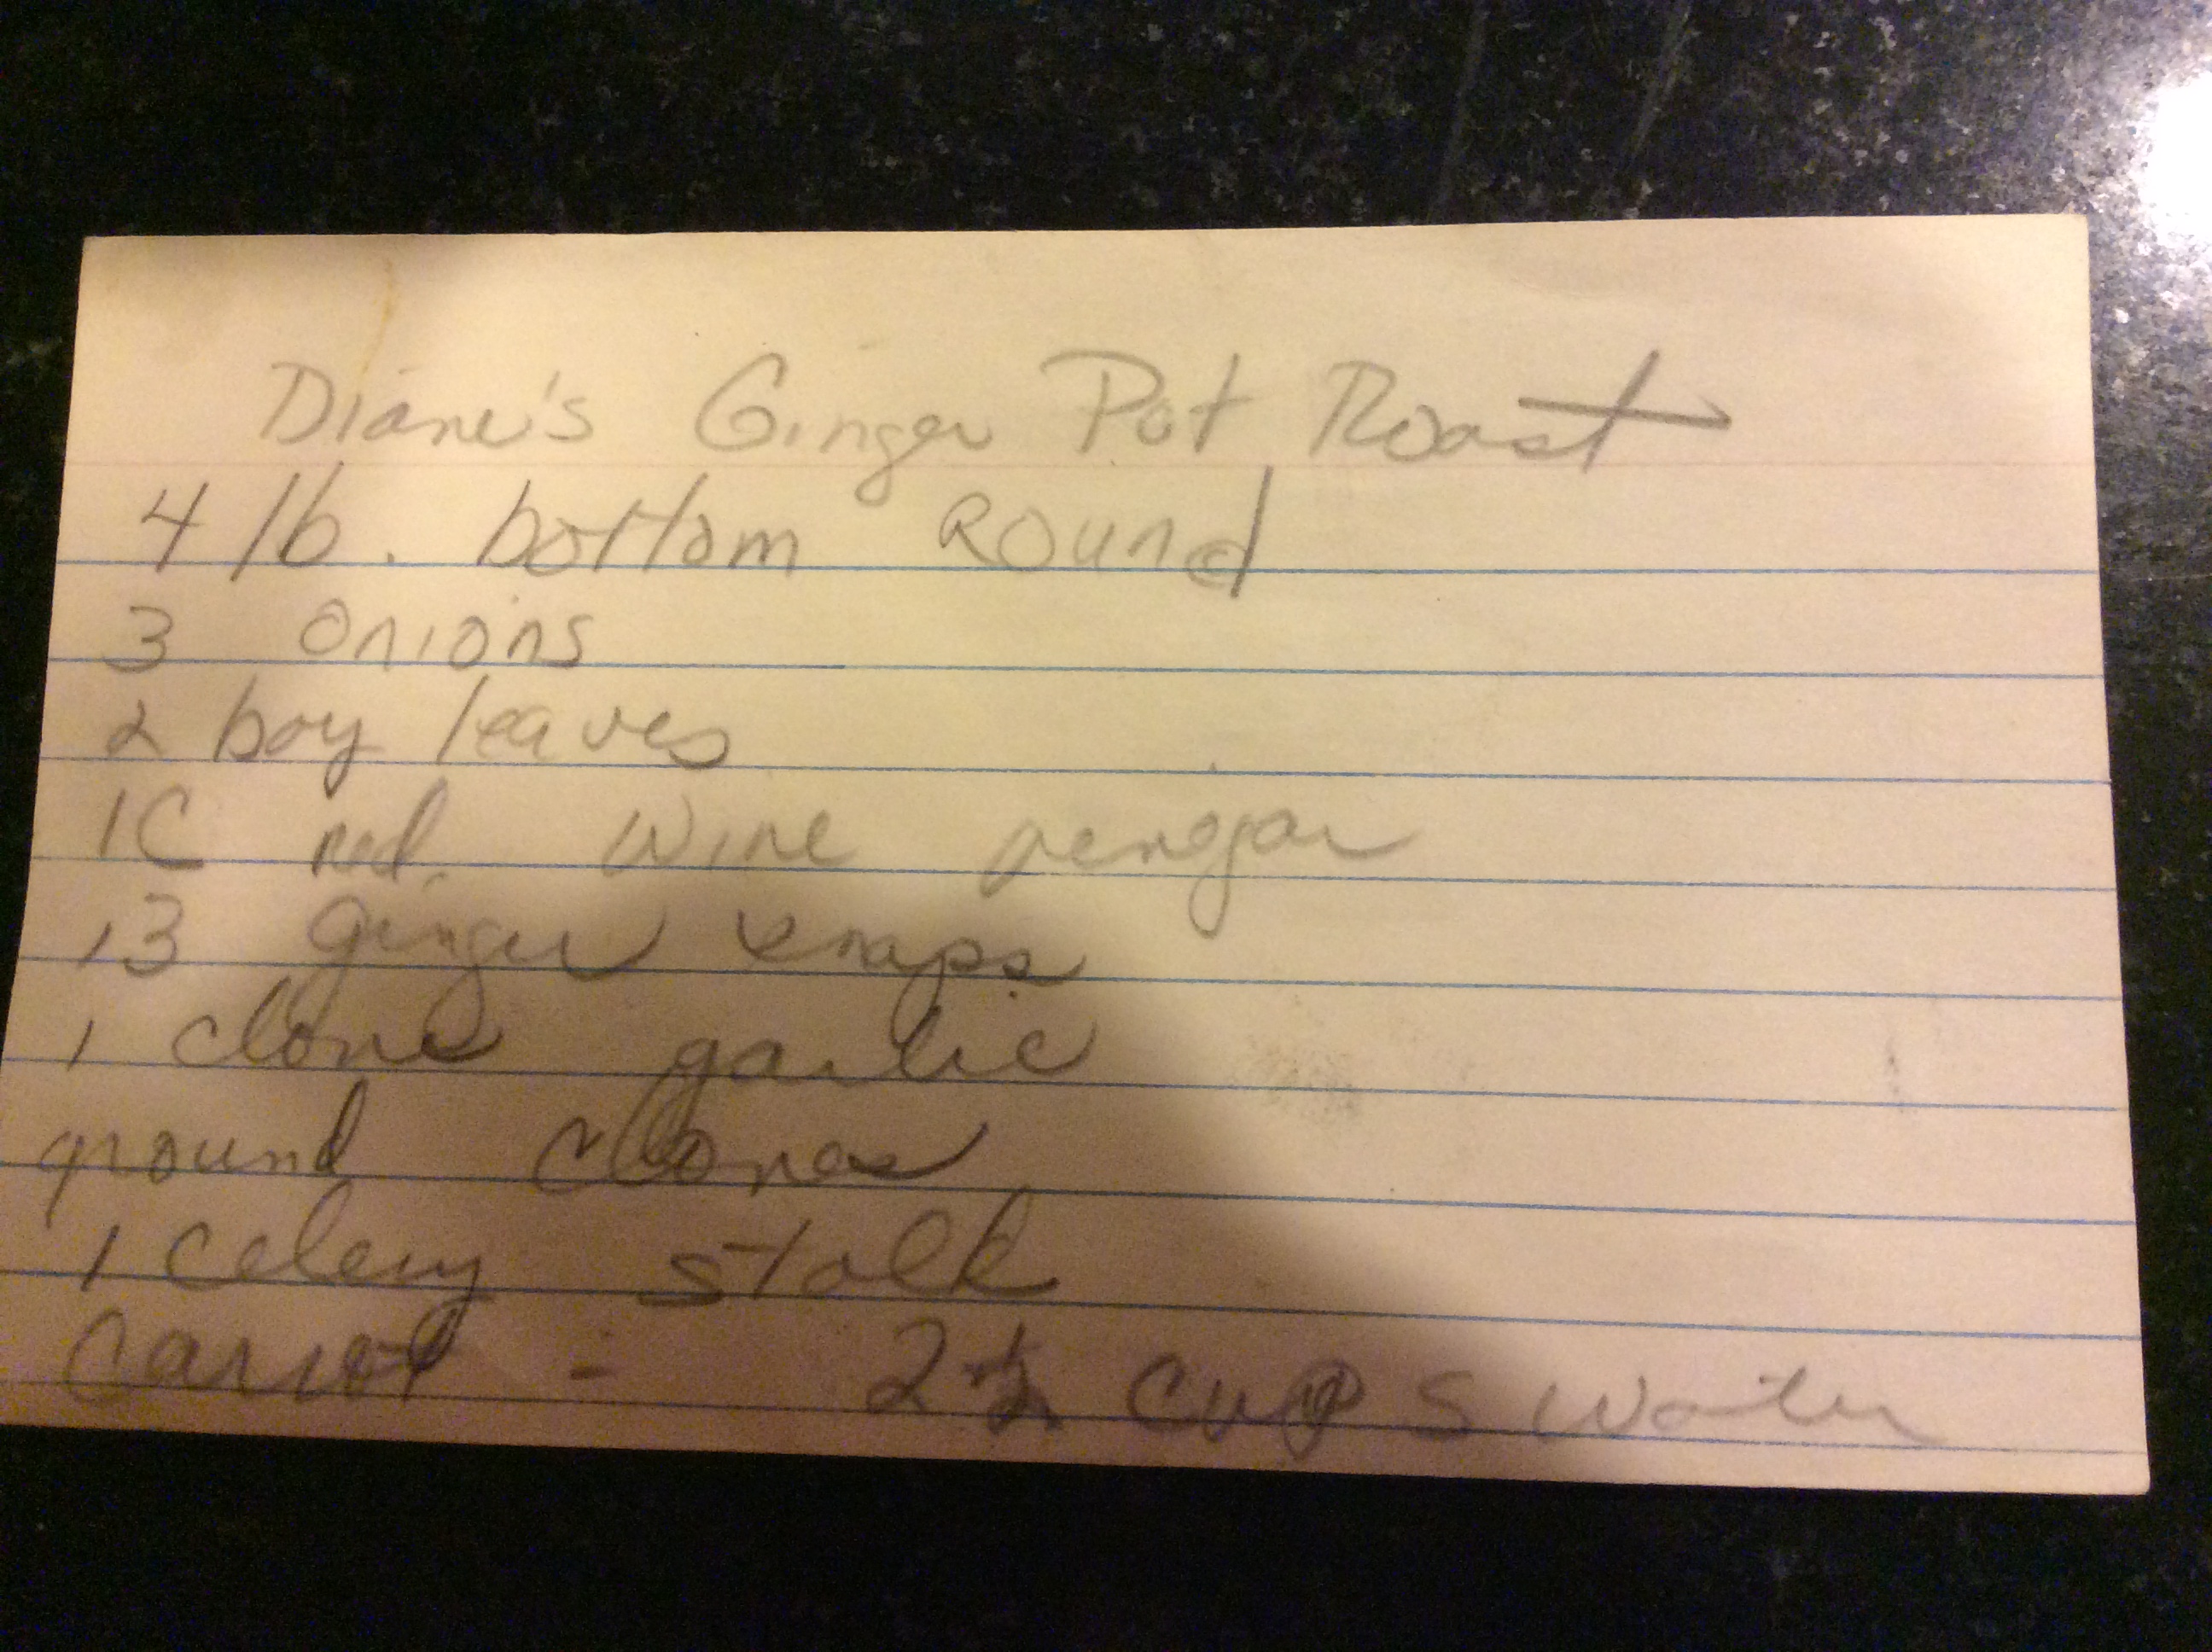 Diane's Ginger Pot Roast
4 lb. bottom Round
3 onions
2 bay leaves
1C red wine venegar
13 ginger snaps
1 clove garlic
ground cloves
1 celery stalk
Carrot - 2 1/2 cups water